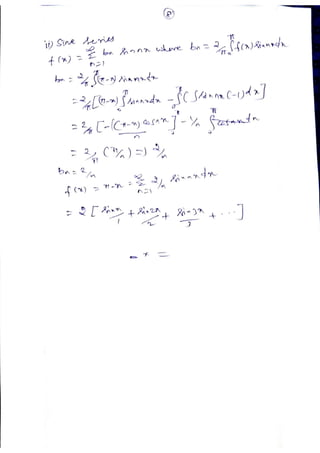 ii) Sine Series
f(x) = ∞Σn=1 bn sin nx where bn = 2/π ∫₀^π f(x) sin nx dx
bn = 2/π ∫₀^π (π-x) sin nx dx
= 2/π [(π-x) ∫₀^π sin nx dx - ∫₀^π ( ∫ sin nx (-1) dx ]
= 2/π [ -(π-x) cos nx / n ]₀^π - 1/n ∫₀^π cos nx dx
= 2/π (π/n) => 2/n
bn = 2/n
f(x) = π-x = ∞Σn=1 2/n sin nx dx
= 2 [ sin x / 1 + sin 2x / 2 + sin 3x / 3 + ... ]
- x =